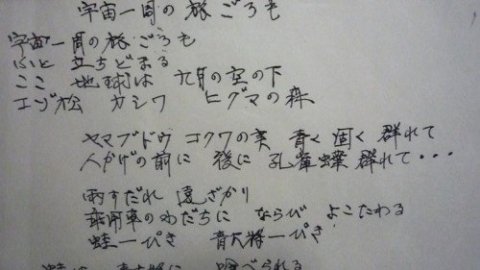 宇宙一周の旅ごろも
宇宙一周の旅ごろも
ふと 立ちどまる
ここ 地球は 九月の空の下
エゾ松 カシワ ヒグマの森
ヤマブドウ コクワの実 青く 固く 群れて
人かげの前に 後に 孔雀蝶 群れて・・・
雨すだれ 遠ざかり
乗用車のわだちに ならび よこたわる
蛙一ぴき 青大将一ぴき
蛙は 青大将に 食べられる